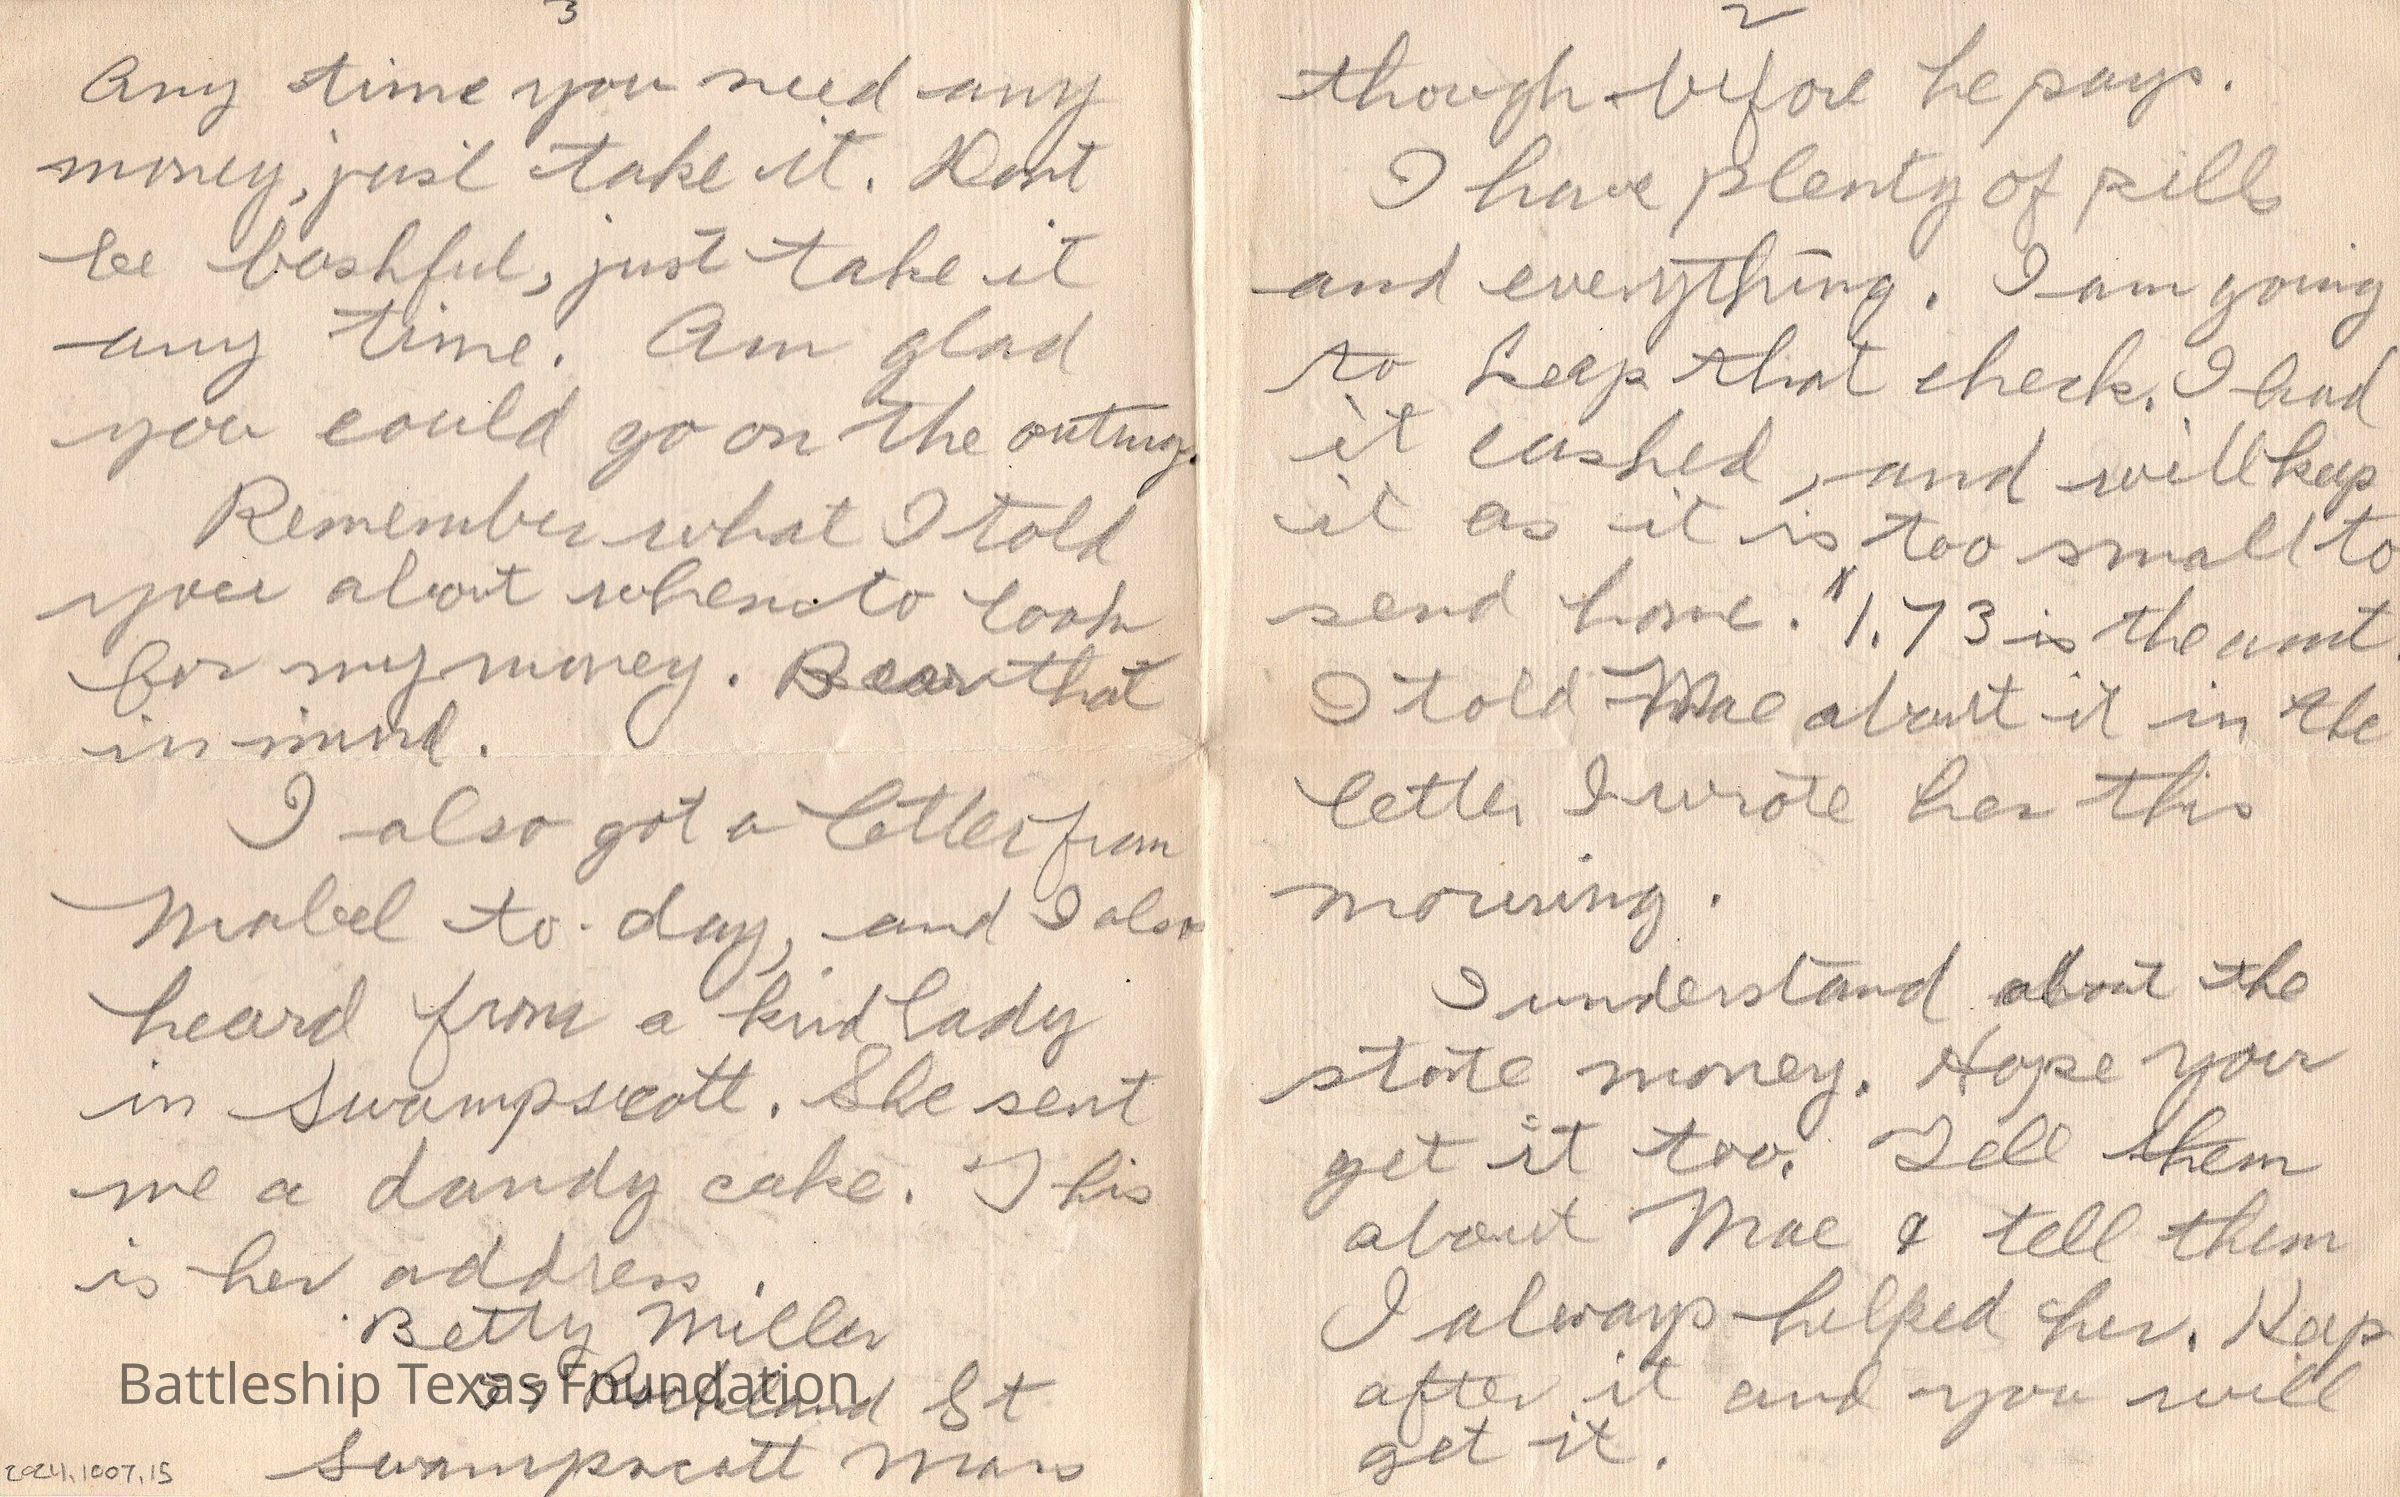 3
Any time you need any
money, just take it. Dont
be bashful, just take it
any time. Am glad
you could go on the outing.
Remember what I told
you about when to look
for my money. Bear that
in mind.
I also got a letter from
Mabel to-day, and I also
heard from a kind lady
in Swampscott. She sent
me a dandy cake. This
is her address.
Betty Miller
Rockland St
Swampscott Mass
Battleship Texas Foundation
2024.1007.15
2
though before he pays.
I have plenty of pills
and everything. I am going
to keep that check. I had
it cashed, and will keep
it as it is too small to
send home. $1.73 is the amt.
I told Mae about it in the
letter I wrote her this
morning.
I understand about the
state money. Hope your
get it too. Tell them
about Mae & tell them
I always helped her. Keep
after it and you will
get it.